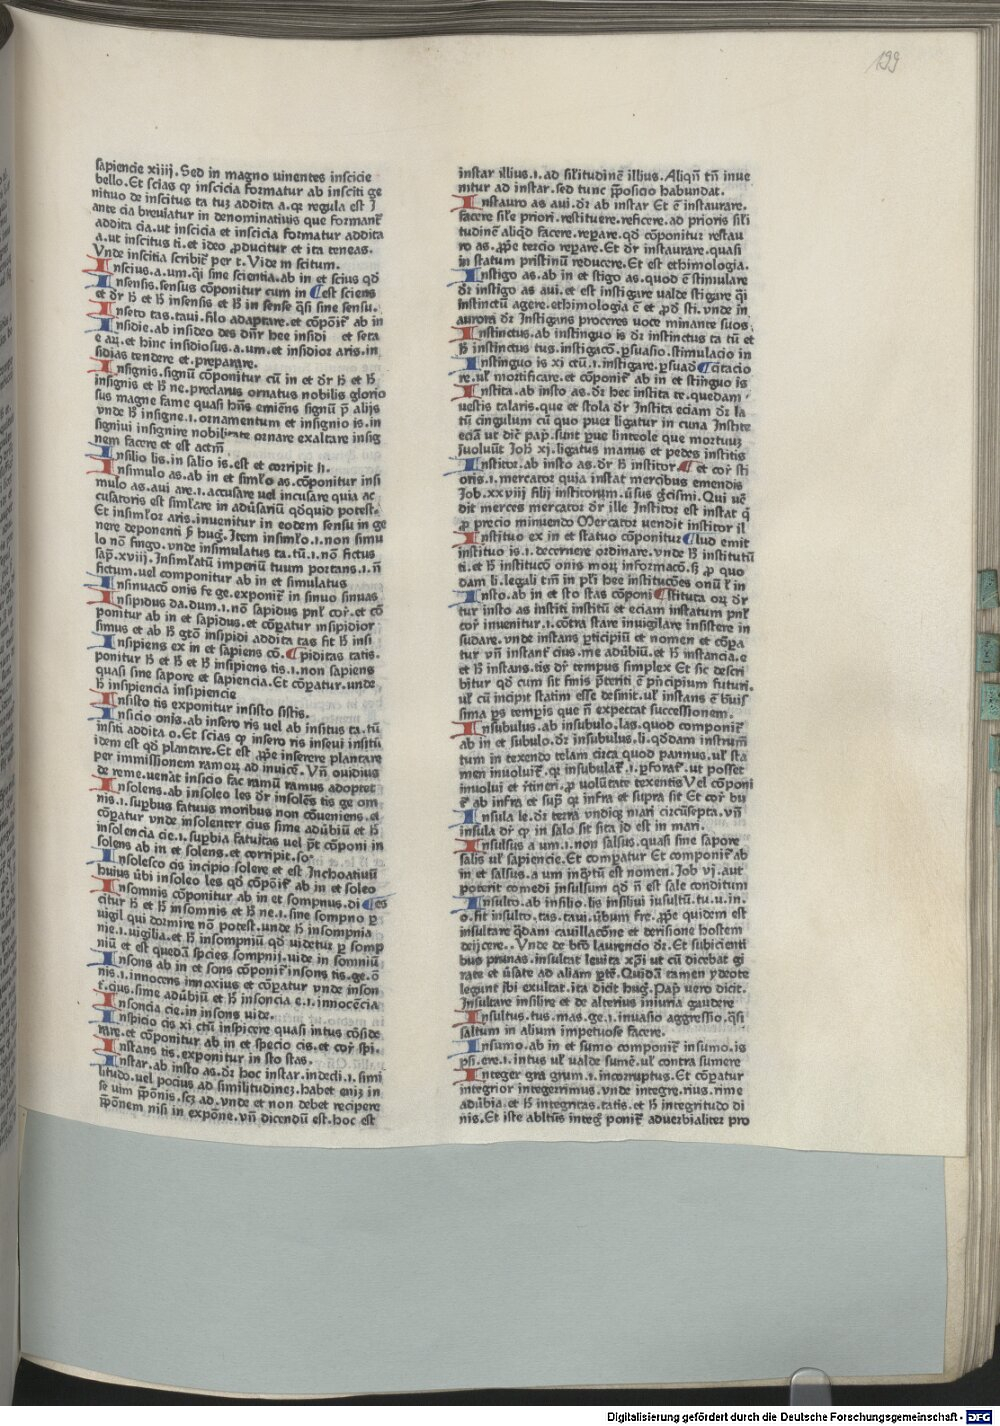 199
sapiencie xiiij. Sed in magno uinentes inscicie
bello. Et scias qꝫ inscicia formatur ab insciti ge
nitiuo de inscitus ta tuꝫ addita a. qꝛ regula est ꝙ
ante cia breuiatur in denominatiuis que formant̄
addita cia. ut inscicia et inscicia formatur addita
a. ut inscitus ti. et ideo ꝓducitur et ita teneas.
Vnde inscitia scribit̄ per t. Vide in scitum.
Inscius. a. um. q̄i sine scientia. ab in et scius qd̄
Insensis. sensus cōponitur cum in ¶ est sciens
et dꝛ h̄ et h̄ insensis et h̄ in sense q̄si sine sensu.
Inseto tas. taui. filo adaptare. et cōpōit̄ ab in
Insidie. ab insideo des dn̄r hee insidi et seta
e aꝝ. et hinc insidiosus. a. um. et insidior aris. in
sidias tendere et preparare.
Insignis. signū cōponitur cū in et dꝛ h̄ et h̄
insignis et h̄ ne. preclarus ornatus nobilis glorio
sus magne fame quasi hn̄s emiēns signū p̄ alijs
vnde h̄ insigne. i. ornamentum et insignio is. in
signiui insignire nobilitate ornare exaltare insig
nem facere et est actm̄
Insilio lis. in salio is. est et corripit li.
Insimulo as. ab in et simlo as. cōponitur insi
mulo as. aui are. i. accusare uel incusare quia ac
cusatoris est simlare in adūsariū qd̄quid potest.
Et insimlor aris. inuenitur in eodem sensu in ge
nere deponenti ẜm hug. Item insimlo. i. non simu
lo nō fingo. vnde insimulatus ta. tū. i. nō fictus
sap̄. xviij. Insimlatū imperiū tuum portans. i. n̄
fictum. uel componitur ab in et simulatus
Insinuacō onis fe ge. exponit̄ in sinuo sinuas
Insipidus da. dum. i. nō sapidus pn̄l cor̄. et cō
ponitur ab in et sapidus. et cōꝑatur insipidior
simus et ab h̄ gtō insipidi addita tas fit h̄ insi
Insipiens ex in et sapiens cō. ¶ piditas tatis.
ponitur h̄ et h̄ et h̄ insipiens tis. i. non sapiens
quasi sine sapore et sapiencia. Et cōꝑatur. unde
h̄ insipiencia insipiencie
Insisto tis exponitur insisto sistis.
Insicio onis. ab insero ris uel ab insitus ta. tū
insiti addita o. Et scias qꝫ insero ris inseui insitū
idem est qd̄ plantare. Et est ꝓpe inserere plantare
per immissionem ramoꝝ ad inuicē. Vn̄ ouidius
de reme. uenāt insicio fac ramū ramus adoptet
Insolens. ab insoleo les dꝛ insolēs tis ge om
nis. i. suꝑbus fatuus moribus non cōueniens. et
cōꝑatur vnde insolenter cius sime adūbiū et h̄
insolencia cie. i. suꝑbia fatuitas uel pt̄ cōponi in
solens ab in et solens. et corripit. so
Insolesco cis incipio solere et est Inchoatiuū
huius ūbi insoleo les qd̄ cōpōit̄ ab in et soleo
Insomnis cōponitur ab in et sompnus. di ¶ es
citur h̄ et h̄ insomnis et h̄ ne. i. sine sompno ꝑ
uigil qui dormire nō potest. unde h̄ insompnia
nie. i. uigilia. et h̄ insompniū qd̄ uidetur ꝑ somp
niū et est quedā spcies sompnij. uide in somniū
Insons ab in et sons cōponit̄ insons tis. ge. ō
nis. i. innocens innoxius et cōꝑatur vnde inson
t̄. cius. sime adūbiū et h̄ insoncia e. i. innocēcia
Insoncia cie. in insons uide.
Inspicio cis xi ctū inspicere quasi intus cōside
rare. et cōponitur ab in et specio cis. et cor̄ spi.
Instans tis. exponitur in sto stas.
Instar. ab insto as. dꝛ hoc instar. indecli. i. simi
litudo. uel pocius ad similitudinez. habet eniꝫ in
se uim p̄pōnis. scꝫ ad. vnde et non debet recipere
p̄pōnem nisi in expōne. vn̄ dicendū est. hoc est
instar illius. i. ad sil̄itudinē illius. Aliqn̄ tn̄ inue
nitur ad instar. sed tunc p̄posicio habundat.
Instauro as aui. dꝛ ab instar Et ē instaurare.
facere sil̄e priori. restituere. reficere. ad prioris sil̄i
tudinē aliqd̄ facere. reꝑare. qd̄ cōponitur restau
ro as. ꝓpe tercio reꝑare. Et dꝛ instaurare. quasi
in statum pristinū reducere. Et est ethimologia.
Instigo as. ab in et stigo as. quod ē stimulare
dꝛ instigo as aui. et est instigare ualde stigare q̄i
instinctū agere. ethimologia ē et ꝓd̄ sti. vnde in
aurora dꝛ Instigans proceres uoce minante suos
Instinctus. ab instinguo is dꝛ instinctus ta tū et
h̄ instinctus tus. instigacō. ꝑsuasio. stimulacio in
Instinguo is xi ctū. i. instigare. ꝑsuad ¶ citacio
re. ul̄ mortificare. et cōponit̄ ab in et stinguo is
Instita. ab insto as. dꝛ hec instita te. quedam
uestis talaris. que et stola dꝛ Instita eciam dꝛ la
tū cingulum cū quo puer ligatur in cuna Instite
eciā ut dic̄ pap̄. sunt ꝑue linteole que mortuuꝫ
īuoluūt Joh̄ xj. ligatus manus et pedes institis
Institor. ab insto as. dꝛ h̄ institor ¶ et cor̄ sti
oris. i. mercator quia instat mercibus emendis
Job. xxviij filij institorum. ūsus grecismi. Qui uē
dit merces mercator dꝛ ille Institor est instat qꝫ
ꝓ precio minuendo Mercator uendit institor il
Instituo ex in et statuo cōponitur ¶ lud emit
instituo is. i. decernere ordinare. vnde h̄ institutū
ti. et h̄ institucō onis moꝝ informacō. s̄ ꝓ quo
dam li. legali tm̄ in pl̄i hee institucōes onū l̄ in
Insto. ab in et sto stas cōponi ¶ stituta oꝝ dꝛ
tur insto as institi institū et eciam instatum pn̄l
cor̄ inuenitur. i. cōtra stare inuigilare insistere in
sudare. vnde instans ꝑticipiū et nomen et cōꝑa
tur vn̄ instant̄ cius. me adūbiū. et h̄ instancia. e
et h̄ instans. tis dꝛ tempus simplex Et sic descri
bitur qd̄ cum sit finis p̄teriti ē pn̄cipium futuri.
ul̄ cū incipit statim esse desinit. ul̄ instans ē bꝛeuis
sima ꝑs temꝑis que n̄ expectat successionem.
Insubulus. ab insubulo. las. quod componit̄
ab in et subulo. dꝛ insubulus. li. qd̄dam instrum̄
tum in texendo telam circa quod pannus. ul̄ sta
men inuoluit̄. qꝛ insubulat̄. i. ꝑforat̄. ut posset
inuolui et r̄tineri. ꝓ uolūtate texentis Vel cōponi
t̄ ab infra et suꝑ qꝛ infra et supra sit Et cor̄ bu
Insula le. dꝛ terra vndiqꝫ mari circūsepta. vn̄
insula dꝛ qꝫ in salo sit sita id est in mari.
Insulsus a um. i. non salsus. quasi sine sapore
salis ul̄ sapiencie. Et comꝑatur Et componit̄ ab
in et salsus. a um inqꝫtū est nomen. Job vj. aut
poterit comedi insulsum qd̄ n̄ est sale conditum
Insulto. ab insilio. lis insiliui iusultū. tu. u. in.
o. fit insulto. tas. taui. ūbum fre. ꝓpe quidem est
insultare qd̄am cauillacōne et derisione hostem
deijcere.. Vnde de bt̄o laurencio dꝛ. Et subicienti
bus prunas. insultat leuita xpi ut cū dicebat gi
rate et ūsate ad aliam ꝑtē. Quidā tamen ydeote
legunt ibi exultat. ita dicit hug. Pap̄ uero dicit.
Insultare insilire et de alterius iniuria gaudere
Insultus. tus. mas. ge. i. inuasio aggressio. q̄si
saltum in alium impetuose facere.
Insumo. ab in et sumo componit̄ insumo. is
psi. ere. i. intus ul̄ ualde sumē. ul̄ contra sumere
Integer gra grum. i. incorruptus. Et cōꝑatur
integrior integerrimus. vnde integre. rius. rime
adūbia. et h̄ integritas. tatis. et h̄ integritudo di
nis. Et iste abltūs inteḡ ponit̄ aduerbialiter pro
Digitalisierung gefördert durch die Deutsche Forschungsgemeinschaft - DFG